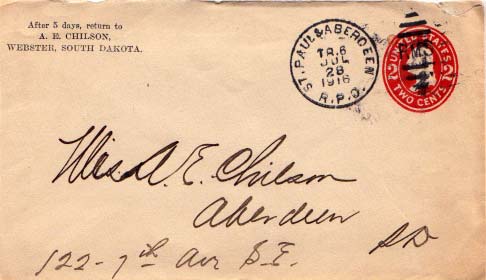 After 5 days, return to
A. E. CHILSON,
WEBSTER, SOUTH DAKOTA.
ST. PAUL & ABERDEEN
TR. 6
JUL
28
1916
R.P.O.
UNITED STATES
2 2
TWO CENTS
RMS
Mrs. A. E. Chilson
Aberdeen
SD
122 - 7th Ave S.E.